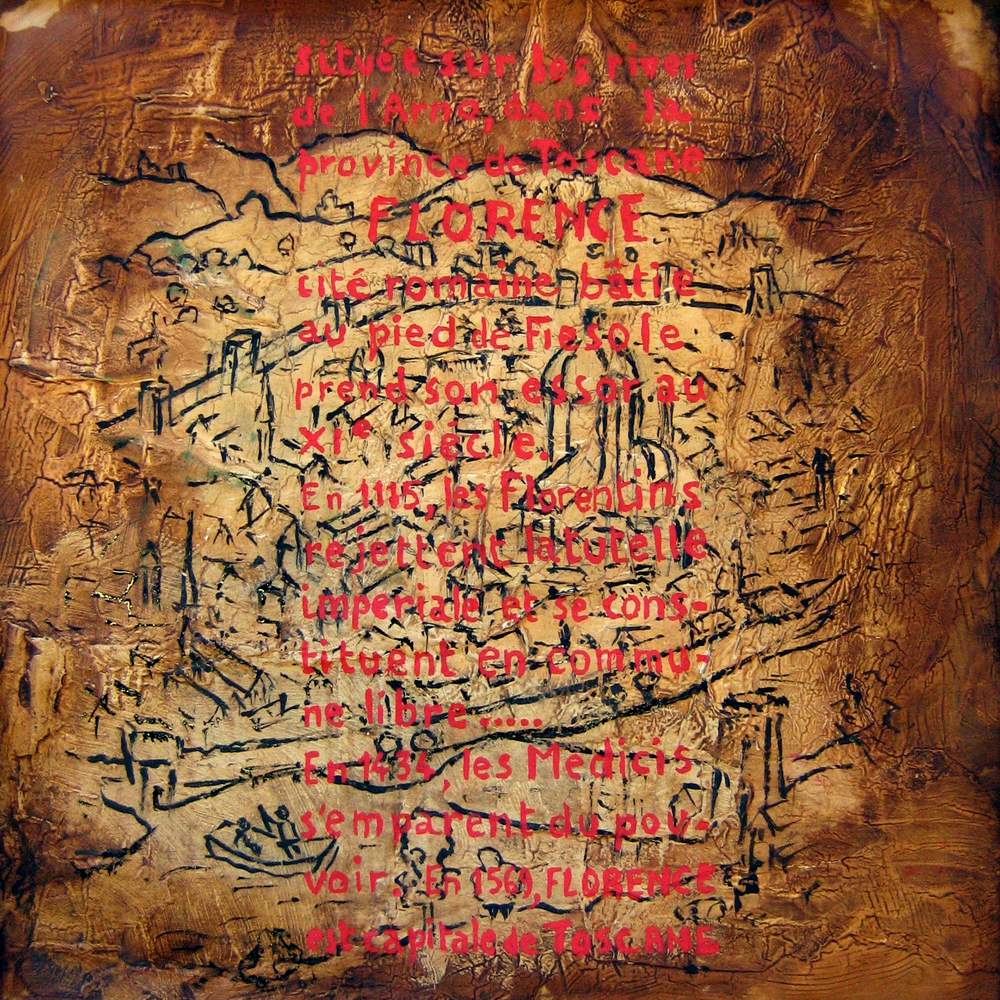 située sur les rives
de l'Arno, dans la
province de Toscane
FLORENCE
cité romaine bâtie
au pied de Fiesole
prend son essor au
XIe siècle.
En 1115, les Florentins
rejettent la tutelle
imperiale et se cons-
tituent en commu-
ne libre.....
En 1434, les Medicis
s'emparent du pou-
voir. En 1569, FLORENCE
est capitale de TOSCANE